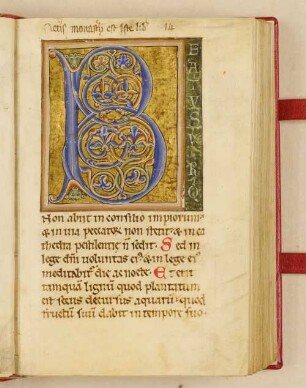 monastery est iste lib
14
B
EATUS VIR Q
Non abiit in consilio impiorum
& in uia peccatoꝝ non stetit: & in ca
thedra pestilentie n̄ sedit. Sed in
lege dn̄i uoluntas ei᷒: & in lege ei᷒
meditabit᷒ die ac nocte. Et erit
tamquā lignū quod plantatum
est secus decursus aquarū: quod
fructū suū dabit in tempore suo.